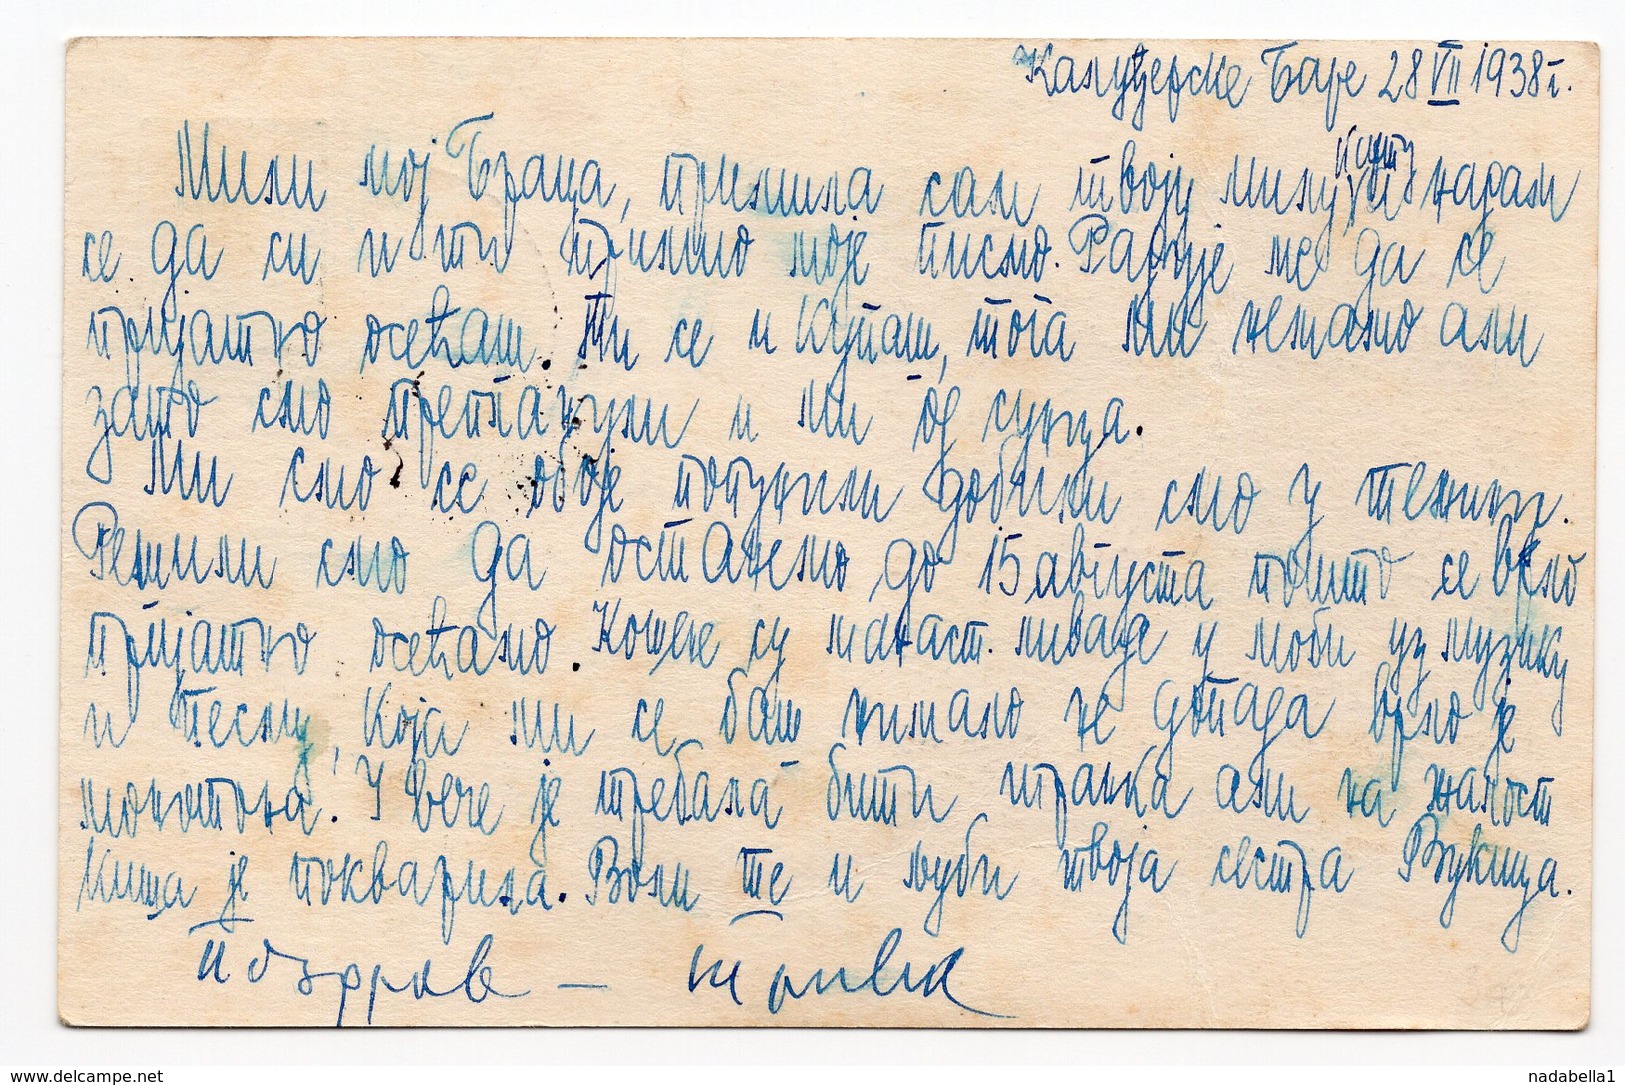 Калуђерске Баре 28 VII 1938 г.
Мили мој Брацa, примила сам твоју милу карту надам
се да си и ти примио моје писмо. Радује ме да се
пријатно осећаш. Ти се и купаш, тога ми немамо али
зато смо препланули и ми од сунца.
Ми смо се обоје попунили добили смо у тежини.
Решили смо да останемо до 15 августа пошто се врло
пријатно осећамо. Кошене су манаст. ливаде у моби уз музику
и песму, која ми се баш нимало не допада врло је
монотона. У вече је требала бити игранка али на жалост
киша је покварила. Воли те и љуби твоја сестра Вукица.
Поздрав –
www.delcampe.net
nadabella1